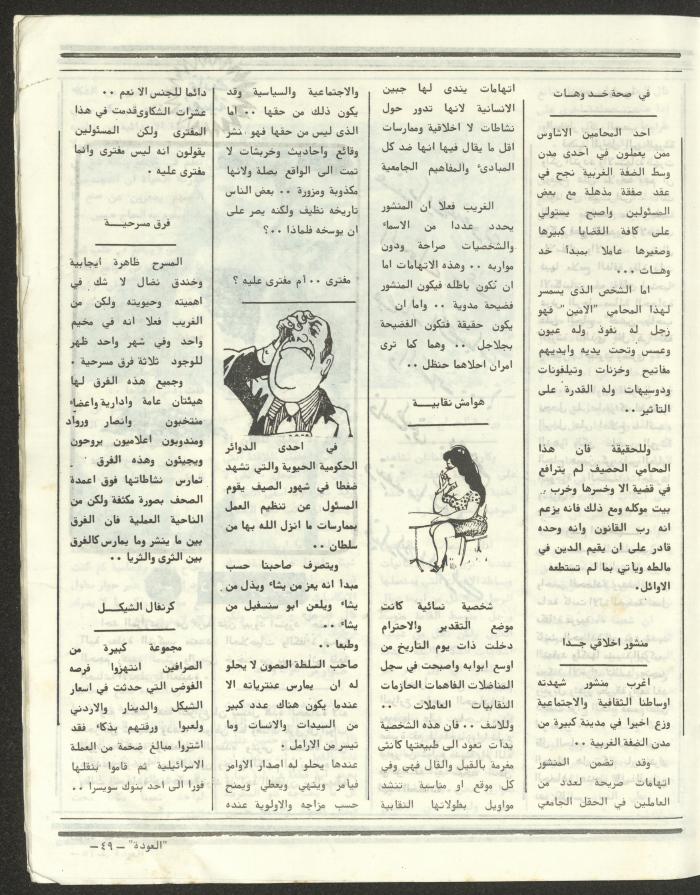 في صحة خـد وهـات
احد المحامين الاشاوس
ممن يعملون في احدى مدن
وسط الضفة الغربية نجح في
عقد صفقة مذهلة مع بعض
المسئولين واصبح يستولي
على كافة القضايا كبيرها
وصغيرها عاملا بمبدأ خد
وهـات ...
اما الشخص الذى يسمسر
لهذا المحامي "الامين" فهو
رجل له نفوذ وله عيون
وعسس وتحت يديه وايديهم
مفاتيح وخزنات وتيلفونات
ودوسيهات وله القدرة على
التأثير ..
وللحقيقة فان هذا
المحامي الحصيف لم يترافع
في قضية الا وخسرها وخرب
بيت موكله ومع ذلك فانه يزعم
انه رب القانون وانه وحده
قادر على ان يقيم الدين في
مالطه ويأتي بما لم تستطعه
الاوائل.
منشور اخلاقي جـدا
اغرب منشور شهدته
اوساطنا الثقافية والاجتماعية
وزع اخيرا في مدينة كبيرة من
مدن الضفة الغربية ..
وقد تضمن المنشور
اتهامات صريحة لعدد من
العاملين في الحقل الجامعي
اتهامات يندى لها جبين
الانسانية لانها تدور حول
نشاطات لا اخلاقية وممارسات
اقل ما يقال فيها انها ضد كل
المبادىء والمفاهيم الجامعية
الغريب فعلا ان المنشور
يحدد عددا من الاسماء
والشخصيات صراحة ودون
مواربه .. وهذه الاتهامات اما
ان تكون باطله فيكون المنشور
فضيحة مدوية .. واما ان
يكون حقيقة فتكون الفضيحة
بجلاجل .. وهما كما ترى
امران احلاهما حنظل ..
هوامش نقابيـة
شخصية نسائية كانت
موضع التقدير والاحترام
دخلت ذات يوم التاريخ من
اوسع ابوابه واصبحت في سجل
المناضلات الفاهمات الحازمات
النقابيات العاملات ..
وللاسف .. فان هذه الشخصية
بدأت تعود الى طبيعتها كأنثى
مغرمة بالقيل والقال فهي وفي
كل موقع او مناسبة تنشد
مواويل بطولاتها النقابية
والاجتماعية والسياسية وقد
يكون ذلك من حقها .. اما
الذى ليس من حقها فهو نشر
وقائع واحاديث وخربشات لا
تمت الى الواقع بصلة ولانها
مكذوبة ومزورة .. بعض الناس
تاريخه نظيف ولكنه يصر على
ان يوسخه فلماذا ..؟
مفترى .. أم مفترى عليه ؟
في احدى الدوائر
الحكومية الحيوية والتي تشهد
ضغطا في شهور الصيف يقوم
المسئول عن تنظيم العمل
بممارسات ما انزل الله بها من
سلطان ..
ويتصرف صاحبنا حسب
مبدأ انه يعز من يشاء ويذل من
يشاء ويلعن ابو سنسفيل من
يشاء ..
وطبعا ..
صاحب السلطة المصون لا يحلو
له ان يمارس عنترياته الا
عندما يكون هناك عدد كبير
من السيدات والانسات وما
تيسر من الارامل .
عندها يحلو له اصدار الاوامر
فيأمر وينهي ويعطي ويمنح
حسب مزاجه والاولوية عنده
دائما للجنس الانعم ..
عشرات الشكاوى قدمت في هذا
المفترى ولكن المسئولين
يقولون انه ليس مفترى وانما
مفترى عليه .
فرق مسرحيـــة
المسرح ظاهرة ايجابية
وخندق نضال لا شك في
اهميته وحيويته ولكن من
الغريب فعلا انه في مخيم
واحد وفي شهر واحد ظهر
للوجود ثلاثة فرق مسرحية .
وجميع هذه الفرق لها
هيئتان عامة وادارية واعضاء
منتخبون وانصار ورواد
ومندوبون اعلاميون يروحون
ويجيئون وهذه الفرق
تمارس نشاطاتها فوق اعمدة
الصحف بصورة مكثفة ولكن من
الناحية العملية فان الفرق
بين ما ينشر وما يمارس كالفرق
بين الثرى والثريا ..
كرنفال الشيكـــل
مجموعة كبيرة من
الصرافين انتهزوا فرصه
الفوضى التي حدثت في اسعار
الشيكل والدينار والاردني
ولعبوا ورقتهم بذكاء فقد
اشتروا مبالغ ضخمة من العملة
الاسرائيلية ثم قاموا بنقلها
فورا الى احد بنوك سويسرا ..
"العودة" ــ ٤٩ــ